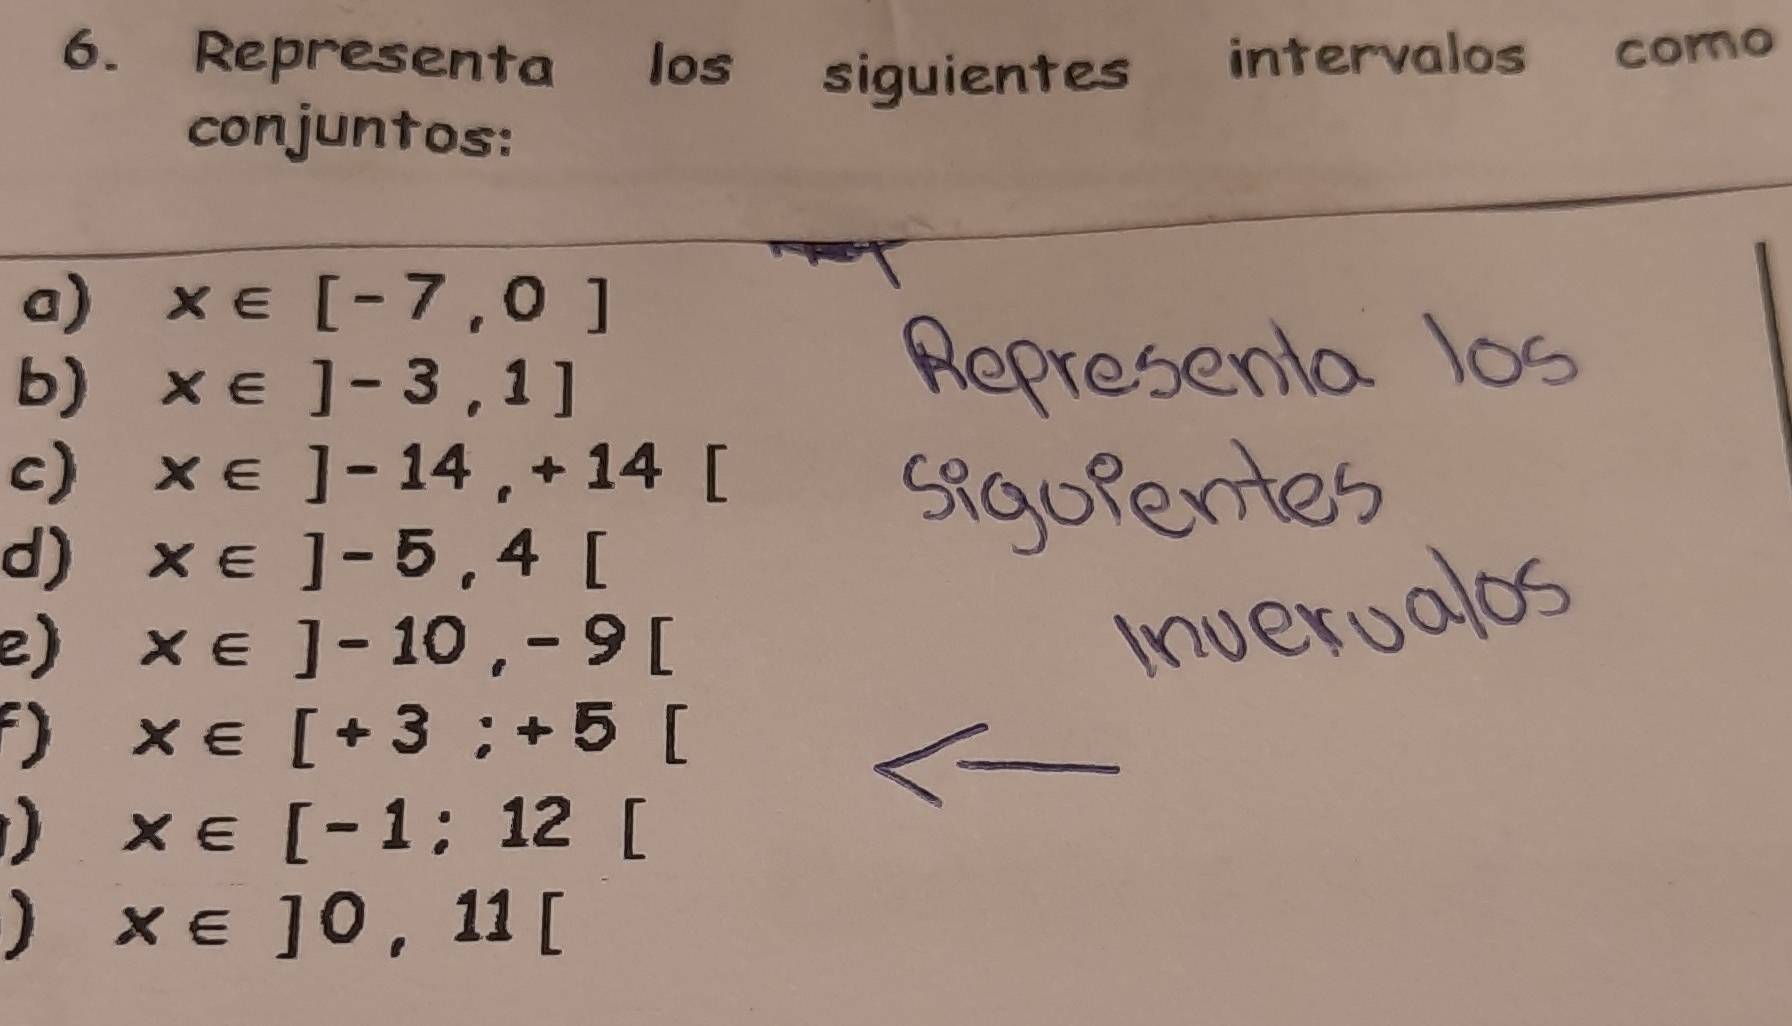 6. Representa los siguientes intervalos como
conjuntos:
a) x ∈ [-7,0 ]
b) x ∈ ]-3,1]
c) x ∈ ]-14,+14 [
d) x ∈ ]-5,4 [
e) x ∈ ]-10,-9[
f) x ∈ [+3 ;+5 [
) x ∈ [-1; 12 [
) x ∈ ]0, 11[
Representa los
siguientes
Invervalos